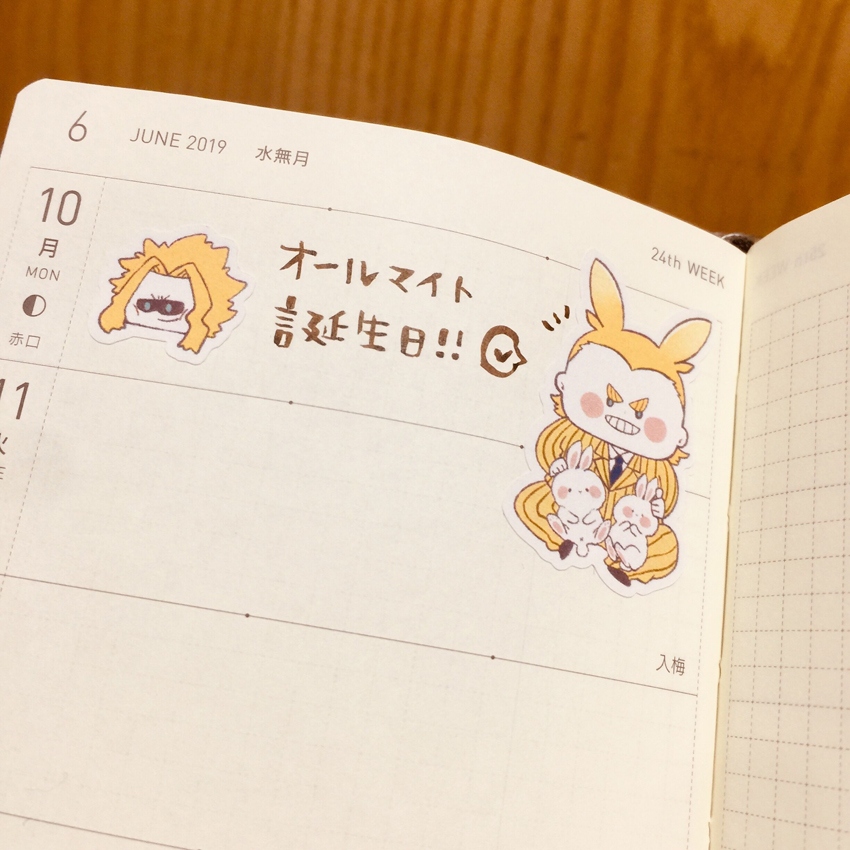 6 JUNE 2019 水無月
24th WEEK
10
月
MON
赤口
オールマイト
誕生日!!
11
火
入梅